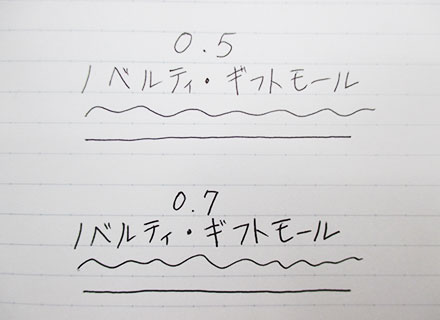 0.5
ノベルティ・ギフトモール
0.7
ノベルティ・ギフトモール